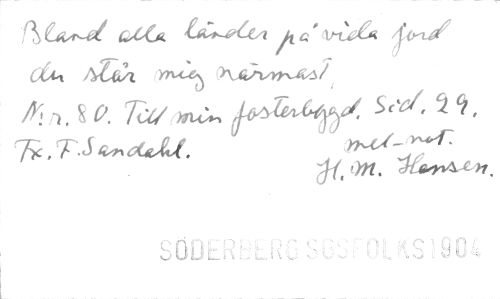 Bland alla länder på vida jord
du står mig närmast,
N:r. 80. Till min fosterbygd. Sid. 29.
Fx. F. Sandahl.
mel-not.
H. M. Hansen.
SÖDERBERG SGSFOLKS1904